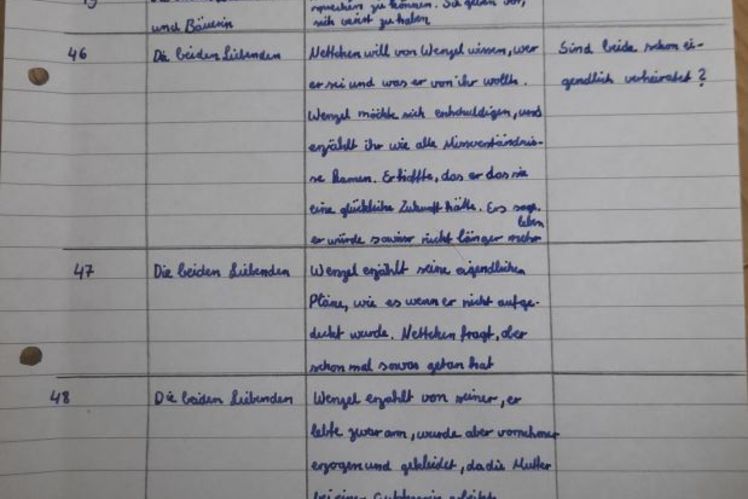 sprechen zu können. Sie
und Bäuerin
sich verirt zu haben
46
Die beiden Liebenden
Nettchen will von Wenzel wissen, wer
er sei und was er von ihr wollte.
Wenzel möchte sich entschuldigen, und
erzählt ihr wie alle Missverständnis-
se kamen. Er hoffte, das er das sie
eine glückliche Zukunft hätte. Ers sage,
er würde sowiso nicht länger mehr leben
Sind beide schon ei-
gendlich verheiratet?
47
Die beiden Liebenden
Wenzel erzählt seine eigendlichen
Pläne, wie es wenn er nicht aufge-
deckt wurde. Nettchen fragt, ober
schon mal sowas getan hat
48
Die beiden Liebenden
Wenzel erzählt von seiner, er
lebte zwar arm, wurde aber vornehmer
erzogen und gekleidet, da die Mutter
bei einer